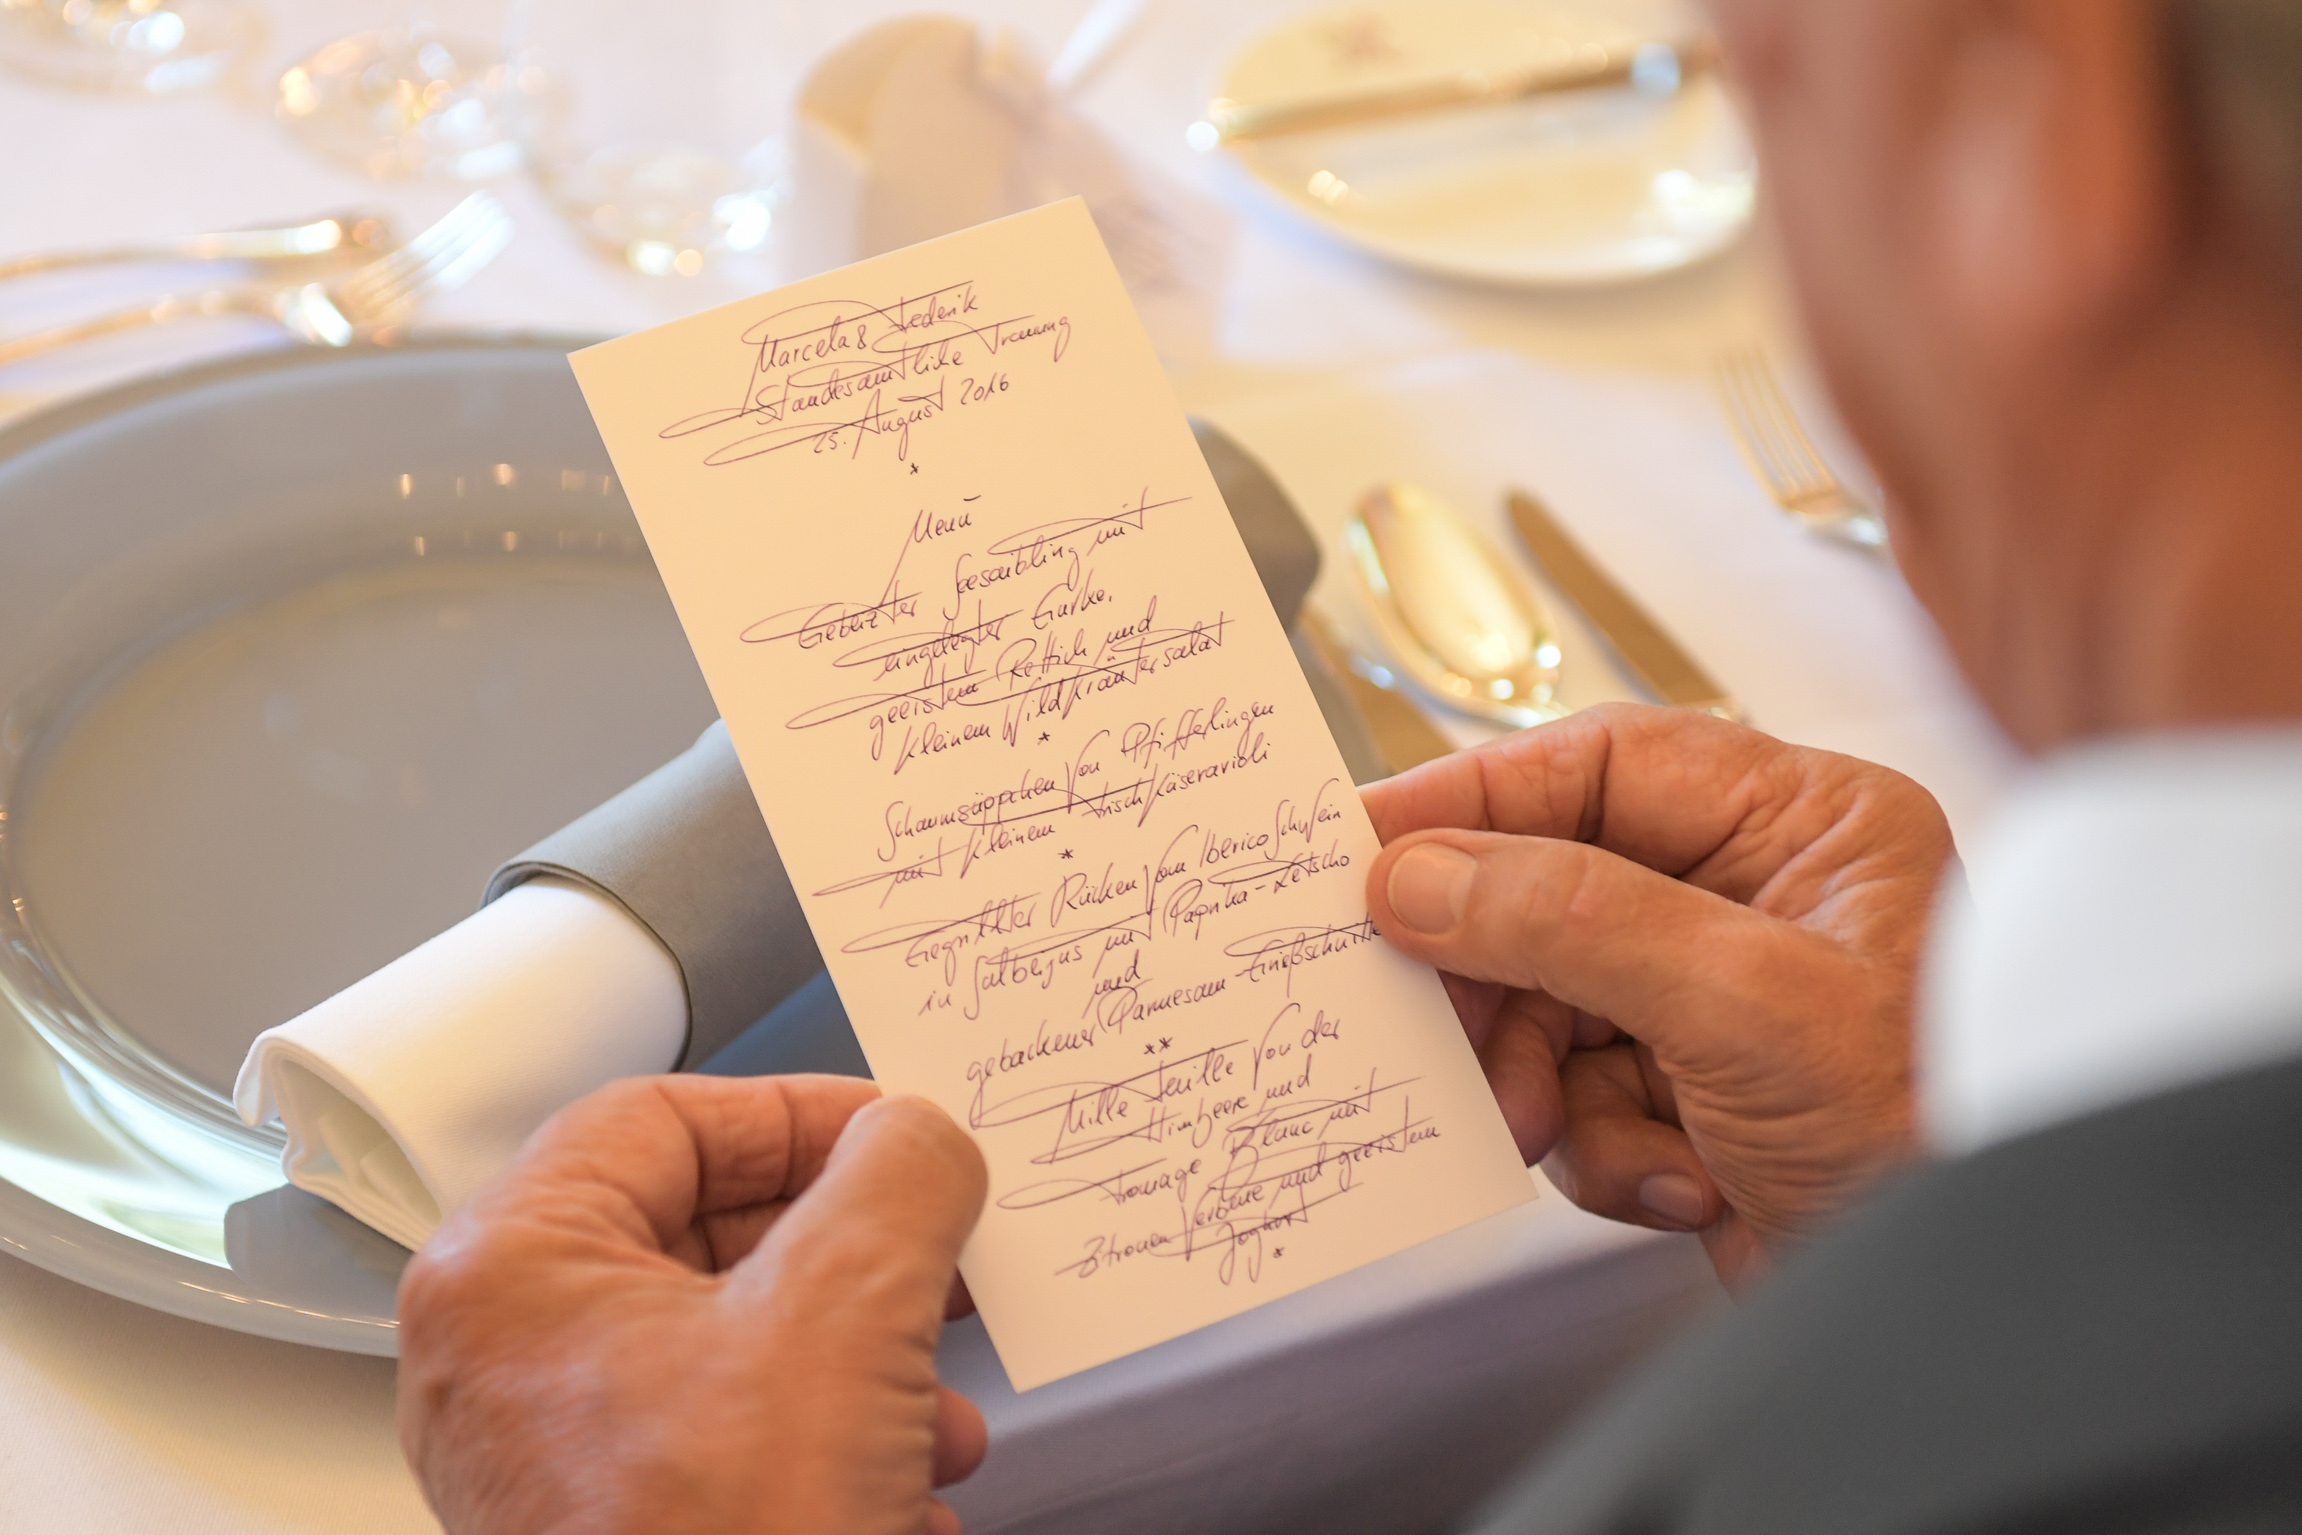 Marcela & Federik
Standesamtliche Trauung
25. August 2016
*
Menü
Gebeizter Seesaibling mit
eingelegter Gurke,
geeistem Rettich und
kleinem Wildkräutersalat
*
Schaumsüppchen von Pfifferlingen
mit kleinem Frischkäseravioli
*
Gegrillter Rücken vom Iberico Schwein
in Salbeijus mit Paprika-Letscho
und
gebackener Parmesam-Grießschnitte
**
Mille Feuille von der
Himbeere und
Fromage Blanc mit
Zitronen Verbene und geeistem
Joghurt
*